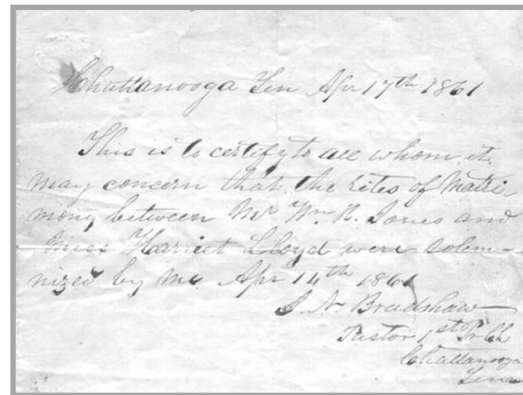 Chattanooga Ten Apr 17th 1861
This is to certify to all whom it
may concern that the rites of Matri
mony between Mr Wm. H. Jones and
Miss Harriet Lloyd were solem-
nized by me. Apr 14th 1861
J. N. Bradshaw
Pastor 1st Pr. Ch
Chattanooga
Tenn